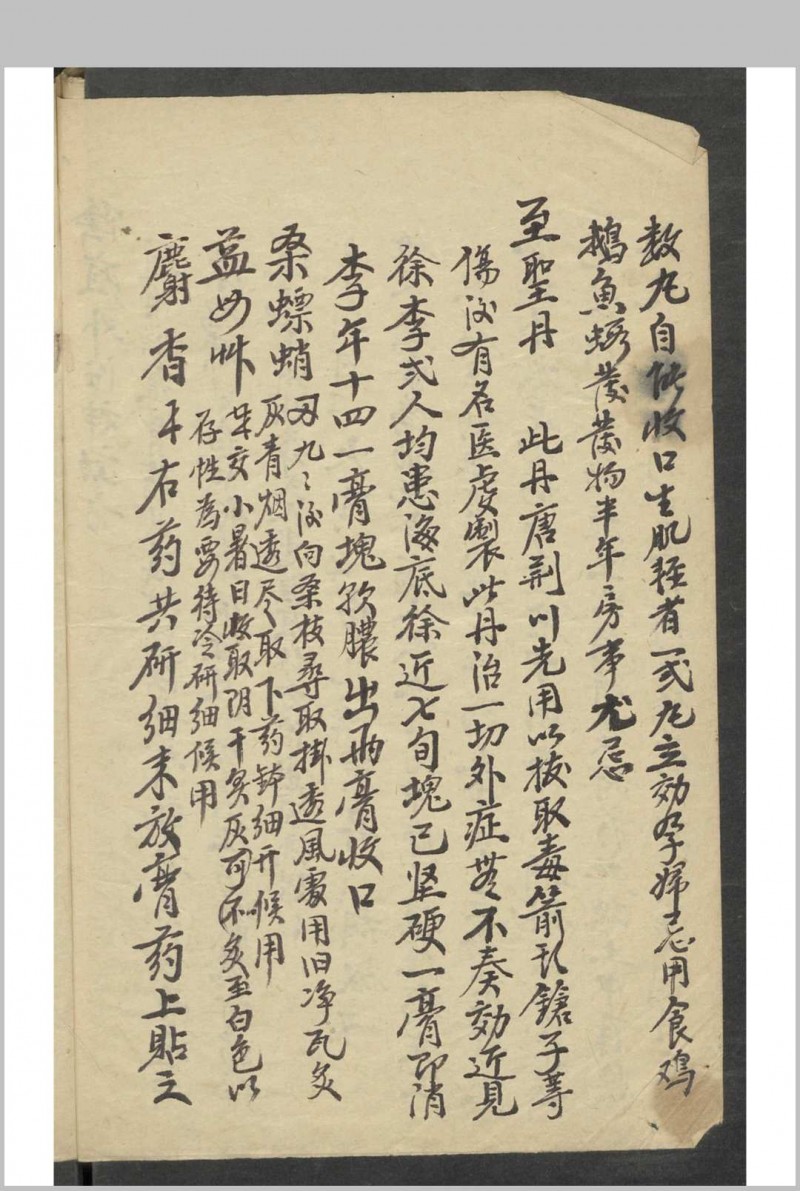 数丸自能收口生肌轻者一弍丸立効孕婦忌用食鸡
鵝魚蝦發物半年房事尤忌
至聖丹 此丹唐荆川先用以拔取毒箭頭鎗子等
傷後有名医虔製此丹治一切外症無不奏効近見
徐李弍人均患海底徐近七旬塊已坚硬一膏即消
李年十四一膏塊软膿出两膏收口
桑螵蛸 刄九〻後向桑枝尋取掛透風處用旧净瓦炙
灰青烟透尽取下药钵细研候用
益母艸 廿交小暑日收取阴干炙灰可不炙至白色以
存性為要待冷研细候用
麝香 右药共研细末放膏药上貼之